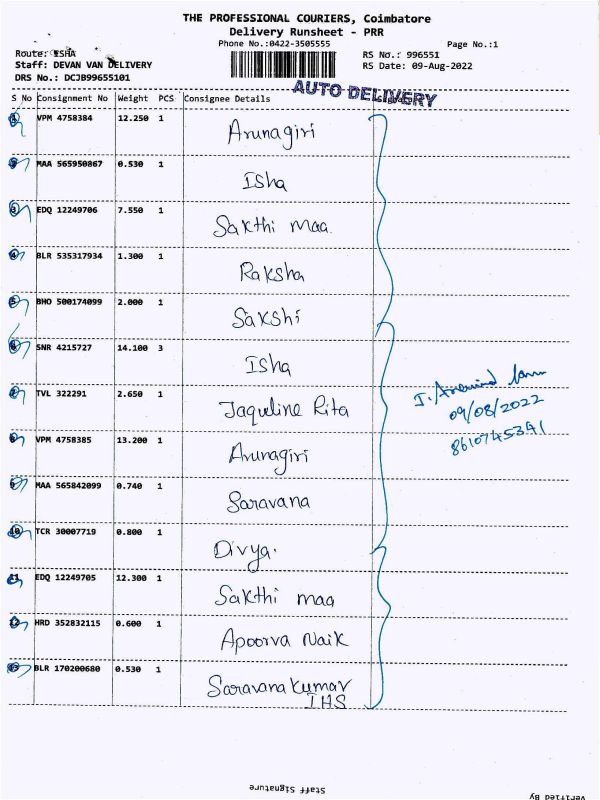 THE PROFESSIONAL COURIERS, Coimbatore
Delivery Runsheet - PRR
Phone No.:0422-3505555
Page No.:1
Route: ISHA
RS No.: 996551
Staff: DEVAN VAN DELIVERY
RS Date: 09-Aug-2022
DRS No.: DCJB99655101
AUTO DELIVERY
S No Consignment No Weight PCS Consignee Details
1 VPM 4758384 12.250 1 Arunagiri
2 MAA 565950867 0.530 1 Isha
3 EDQ 12249706 7.550 1 Sakthi maa.
4 BLR 535317934 1.300 1 Raksha
5 BHO 500174099 2.000 1 Sakshi
6 SNR 4215727 14.100 3 Isha
7 TVL 322291 2.650 1 Jaquline Rita
8 VPM 4758385 13.200 1 Arunagiri
9 MAA 565842099 0.740 1 Saravana
10 TCR 30007719 0.800 1 Divya.
11 EDQ 12249705 12.300 1 Sakthi maa
12 HRD 352832115 0.600 1 Apoorva Naik
13 BLR 170200680 0.530 1 Saravana Kumar
IHS
09/08/2022
8610745341
Staff Signature
Verified By